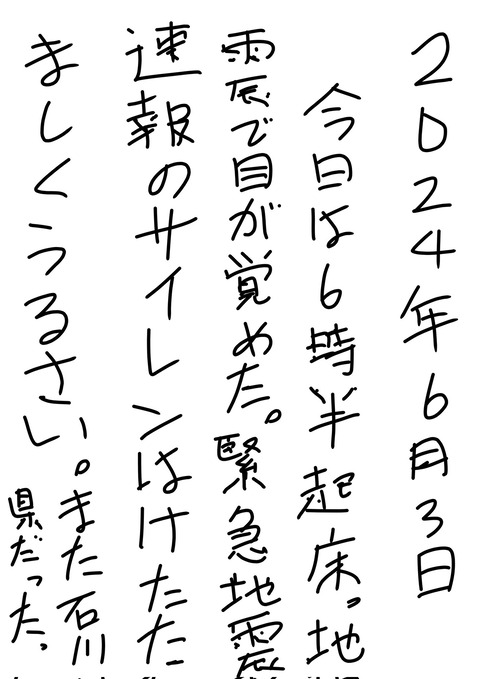 2024年6月3日
今日は6時半起床。地
震で目が覚めた。緊急地震
速報のサイレンはけたた
ましくうるさい。また石川
県だった。